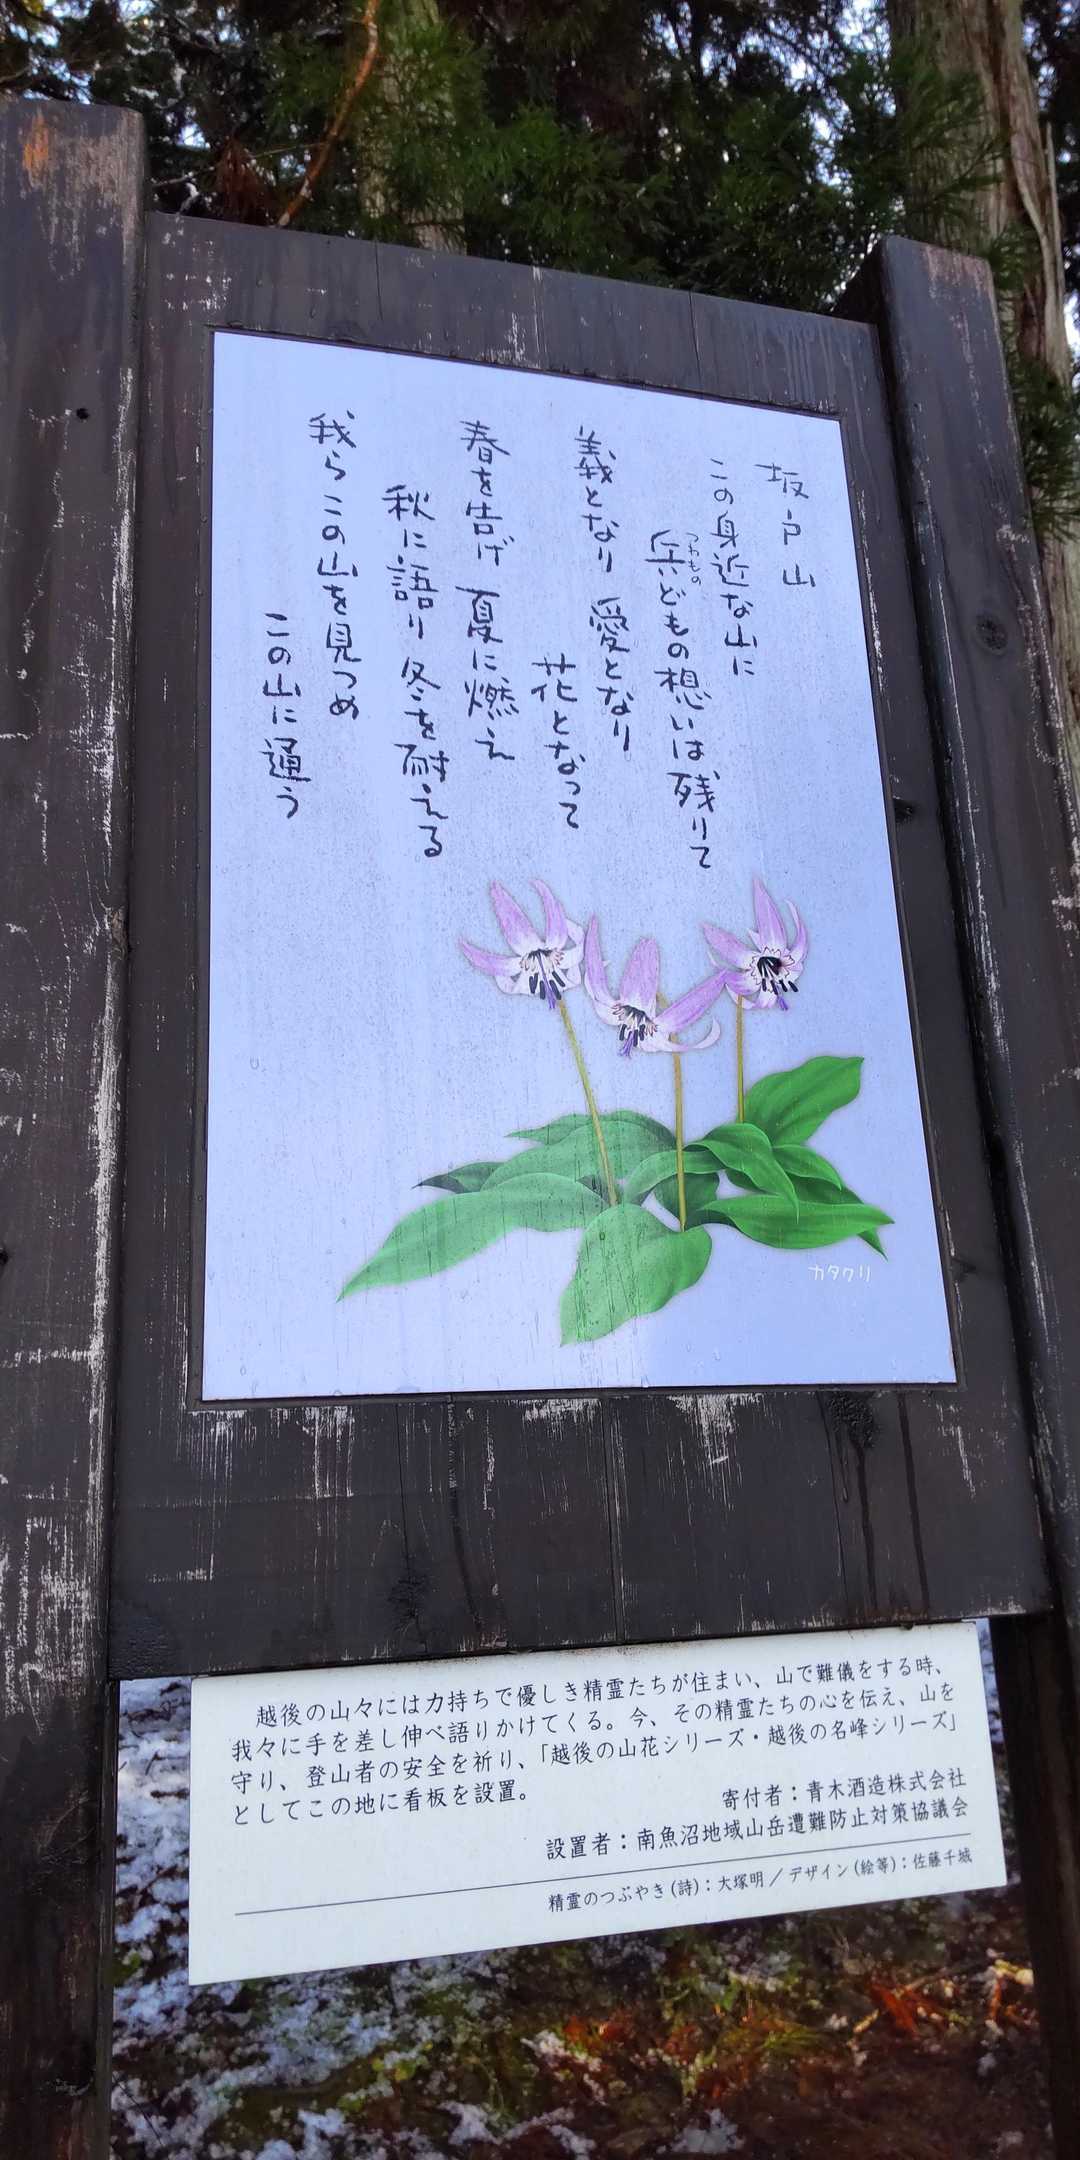 坂戸山
この身近な山に
兵どもの想いは残りて
つわもの
義となり 愛となり
花となって
春を告げ 夏に燃え
秋に語り 冬を耐える
我らこの山を見つめ
この山に通う
カタクリ
越後の山々には力持ちで優しき精霊たちが住まい、山で難儀をする時、
我々に手を差し伸べ語りかけてくる。今、その精霊たちの心を伝え、山を
守り、登山者の安全を祈り、「越後の山花シリーズ・越後の名峰シリーズ」
としてこの地に看板を設置。
寄付者：青木酒造株式会社
設置者：南魚沼地域山岳遭難防止対策協議会
精霊のつぶやき(詩)：大塚明／デザイン(絵等)：佐藤千城